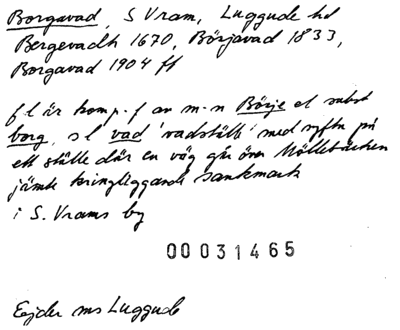 Borgavad, S Vram, Luggude hd
Bergevadh 1670, Börjavad 1833,
Borgavad 1904 ff
f l är komp. f av m-n Börje el subst
borg, s l vad 'vadställe' med syftn på
ett ställe där en väg går över Möllebäcken
jämte kringliggande sankmark
i S. Vrams by
00031465
Ejder ms Luggude